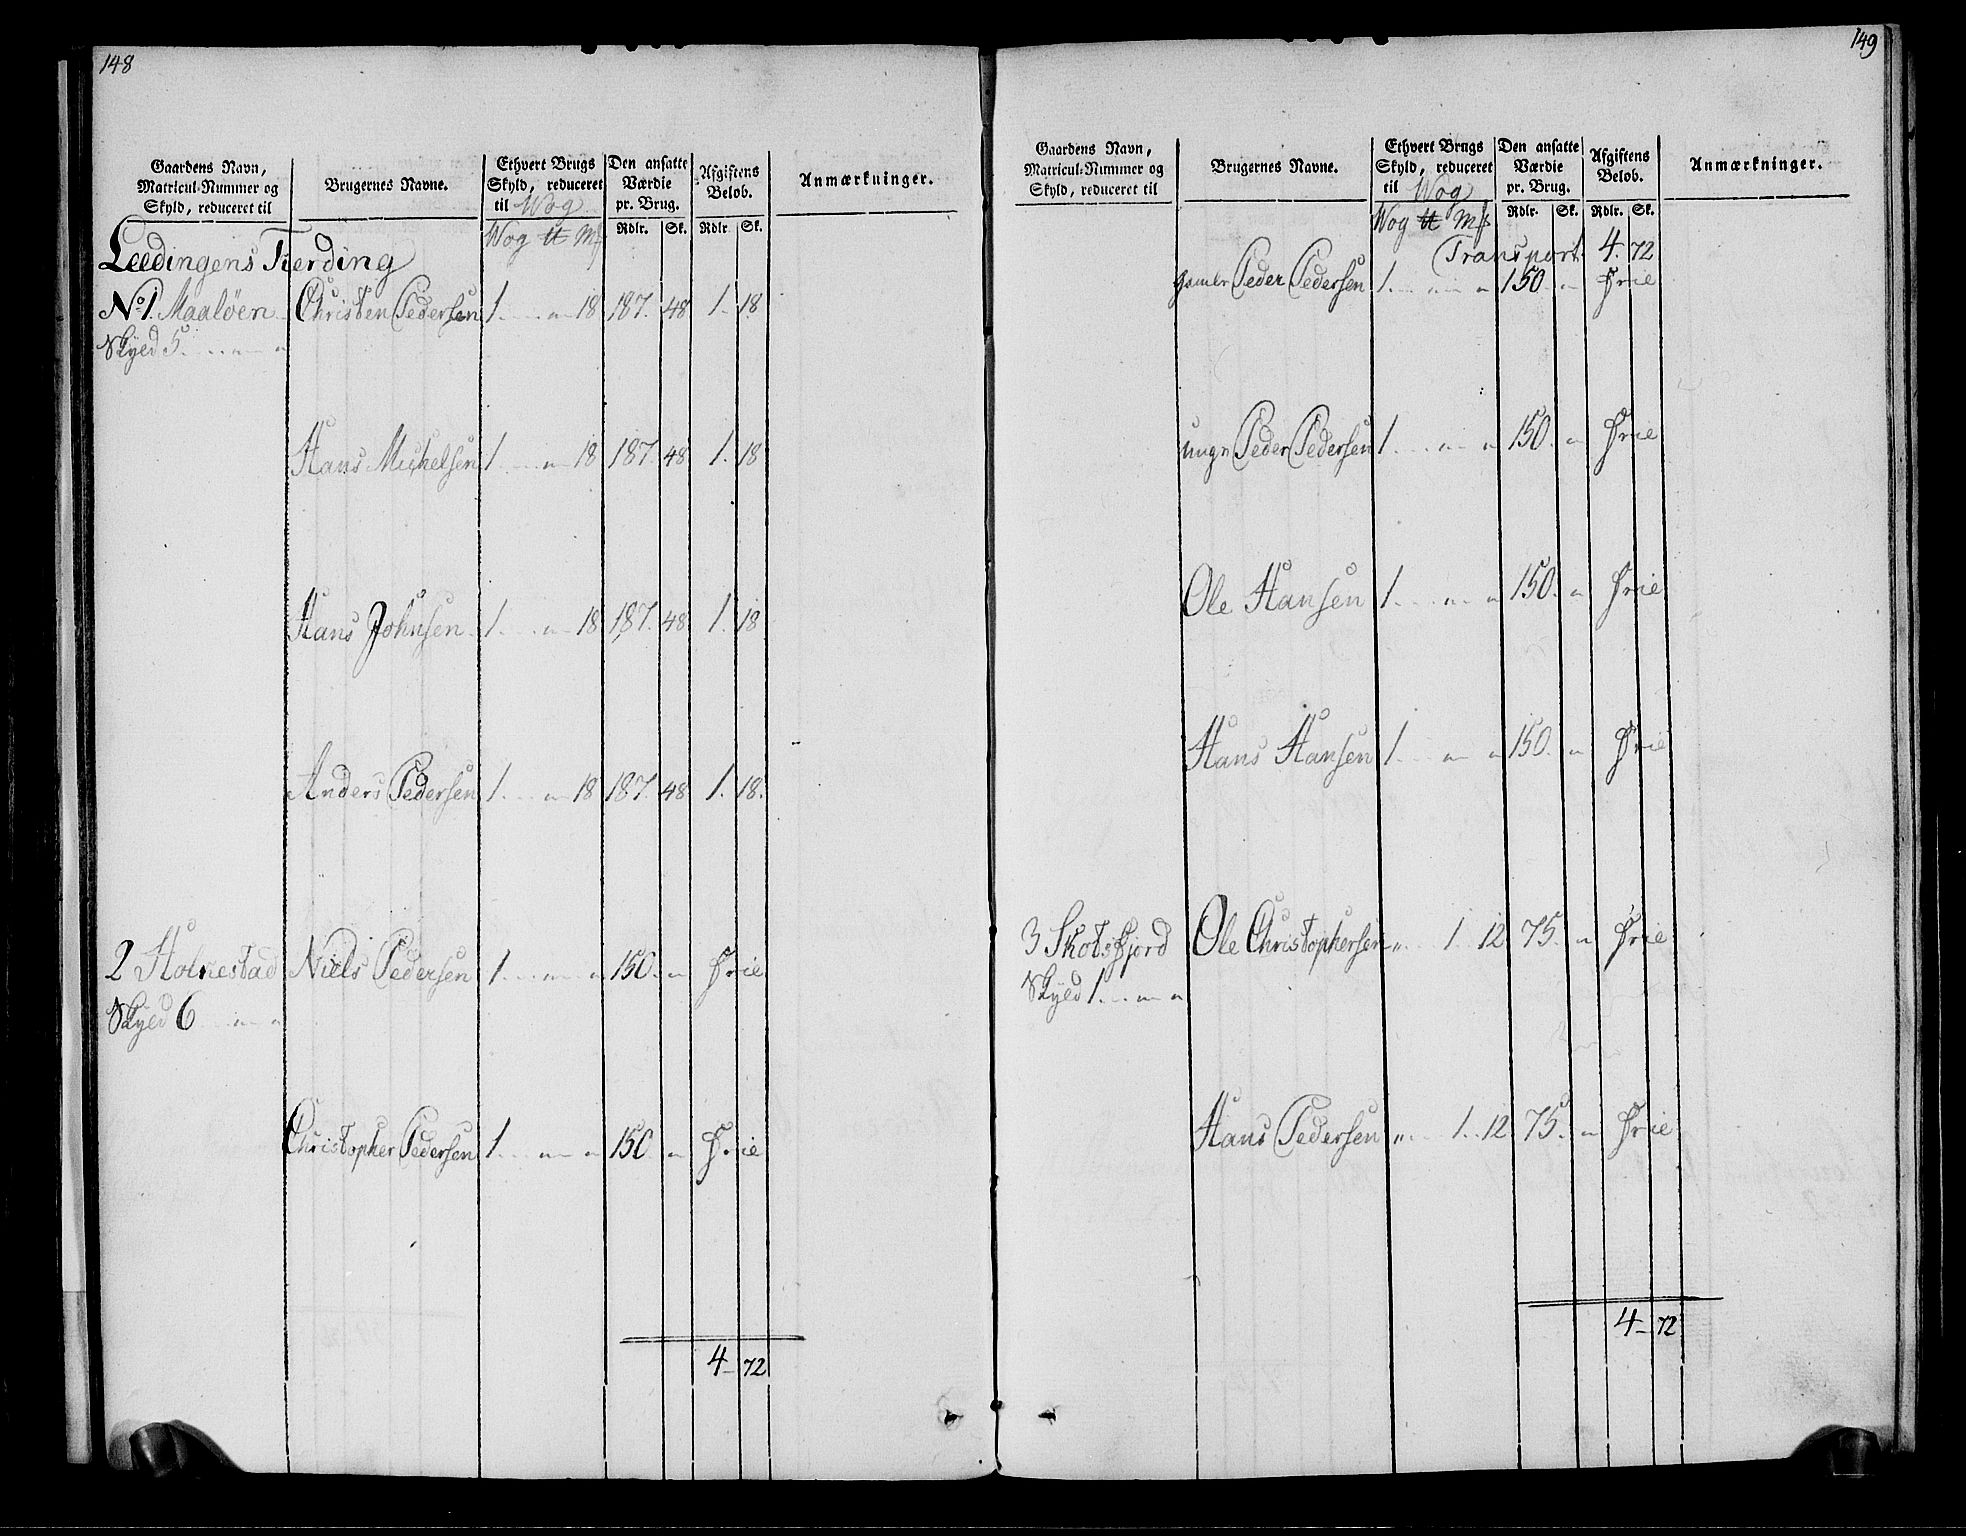 148
Gaardens Navn, Matricul-Nummer og Skyld, reduceret til | Brugernes Navne. | Ethvert Brugs Skyld, reduceret til Wog | Den ansatte Værdie pr. Brug. | Afgiftens Beløb. | Anmærkninger.
Wog ℔ Mſ | Rdlr. | Sk. | Rdlr. | Sk.
Leedingens Fierding
No 1. Maaløen Christen Pedersen 1. „ 18 187. 48 1. 18
Skyld 5. „ „
Hans Michelsen 1 „ 18 187. 48 1. 18
Hans Johnsen 1 „ 18 187. 48 1. 18
Anders Pedersen 1 „ 18 187. 48 1. 18.
2 Holnestad Niels Pedersen 1 „ „ 150. „ Frie
Skyld 6 „ „
Christopher Pedersen 1 „ „ 150 „ Frie
4 72
149
Gaardens Navn, Matricul-Nummer og Skyld, reduceret til | Brugernes Navne. | Ethvert Brugs Skyld, reduceret til Wog | Den ansatte Værdie pr. Brug. | Afgiftens Beløb. | Anmærkninger.
Wog ℔ Mſ | Rdlr. | Sk. | Rdlr. | Sk.
Transport 4. 72
gamle Peder Pedersen 1. „ „ 150. „ Frie
unge Peder Pedersen 1 „ „ 150. „ Frie
Ole Hansen 1. „ „ 150. „ Frie
Hans Hansen 1 „ „ 150. „ Frie
3 Skotsfjord Ole Christophersen „ 1. 12 75. „ Frie
Skyld 1. „ „
Hans Pedersen „ 1. 12 75. „ Frie
4 72